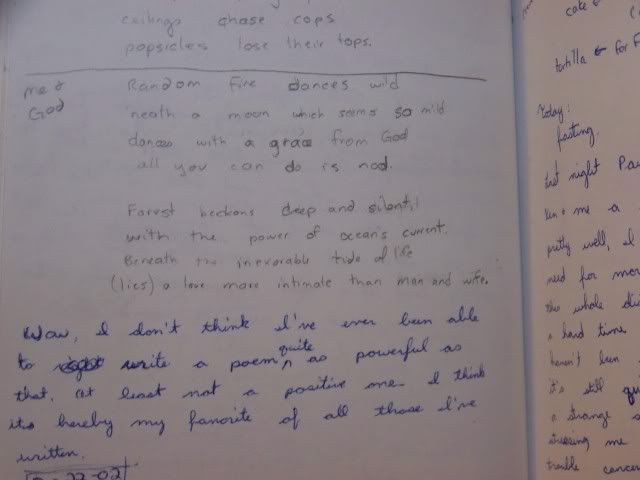 ceilings chase cops
popsicles lose their tops.
me &
God
Random Fire dances wild
neath a moon which seems so mild
dances with a grace from God
all you can do is nod.
Forest beckons deep and silent,
with the power of ocean's current.
Beneath the inexorable tide of life
(lies) a love more intimate than man and wife.
Wow, I don't think I've ever been able
to write a poem quite as powerful as
that. At least not a positive one. I think
its hereby my favorite of all those I've
written.
cake
tortilla for F
Today:
fasting.
last night
me a
pretty well, I
need for mo
the whole di
a hard time
haven't been
it's still qu
a strange s
stressing me
trouble cance